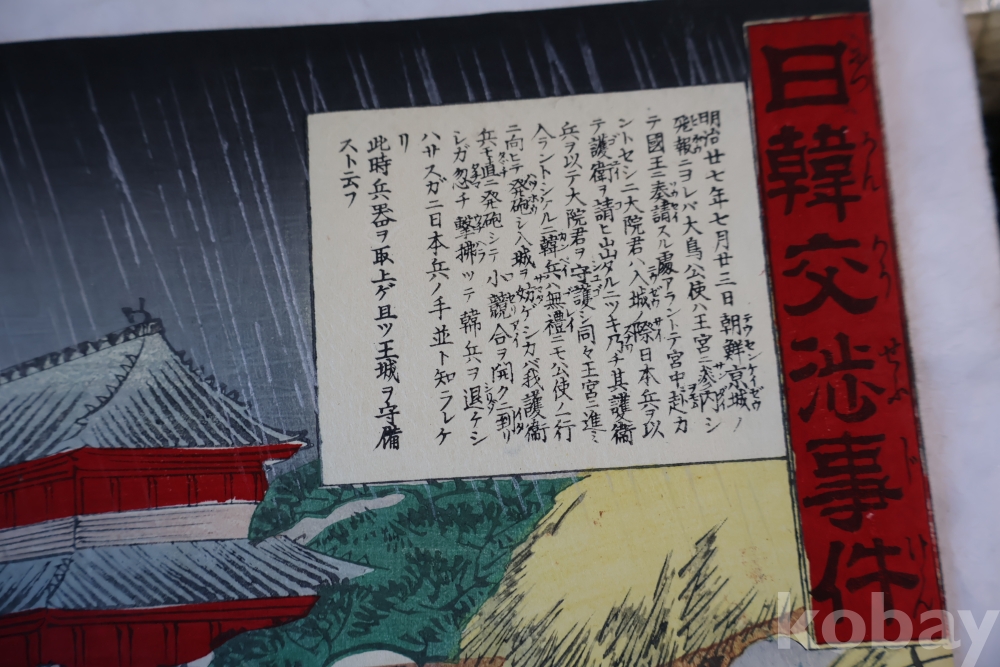 日韓交渉事件
明治廿七年七月廿三日朝鮮京城ノ
発報ニヨレバ大鳥公使ハ王宮ニ参内シ
テ國王ニ奏請スル處アラントテ宮中ニ赴カ
ントセシニ大院君ハ入城ノ際日本兵ヲ以
テ護衛ヲ請ヒ出ダルニツキ乃チ其護衛
兵ヲ以テ大院君ヲ守護シ同々王宮ニ進ミ
入ラントシタルニ韓兵ハ無禮ニモ公使ノ一行
ニ向ヒテ発砲シ入城ヲ妨ゲシカバ我護衛
兵モ直ニ発砲シテ小競合ヲ開クニ到リ
シガ忽チ撃拂ツテ韓兵ヲ退ケシ
ハサスガニ日本兵ノ手並ト知ラレケ
リ
此時兵器ヲ取上ゲ且ツ王城ヲ守備
スト云フ
kobay